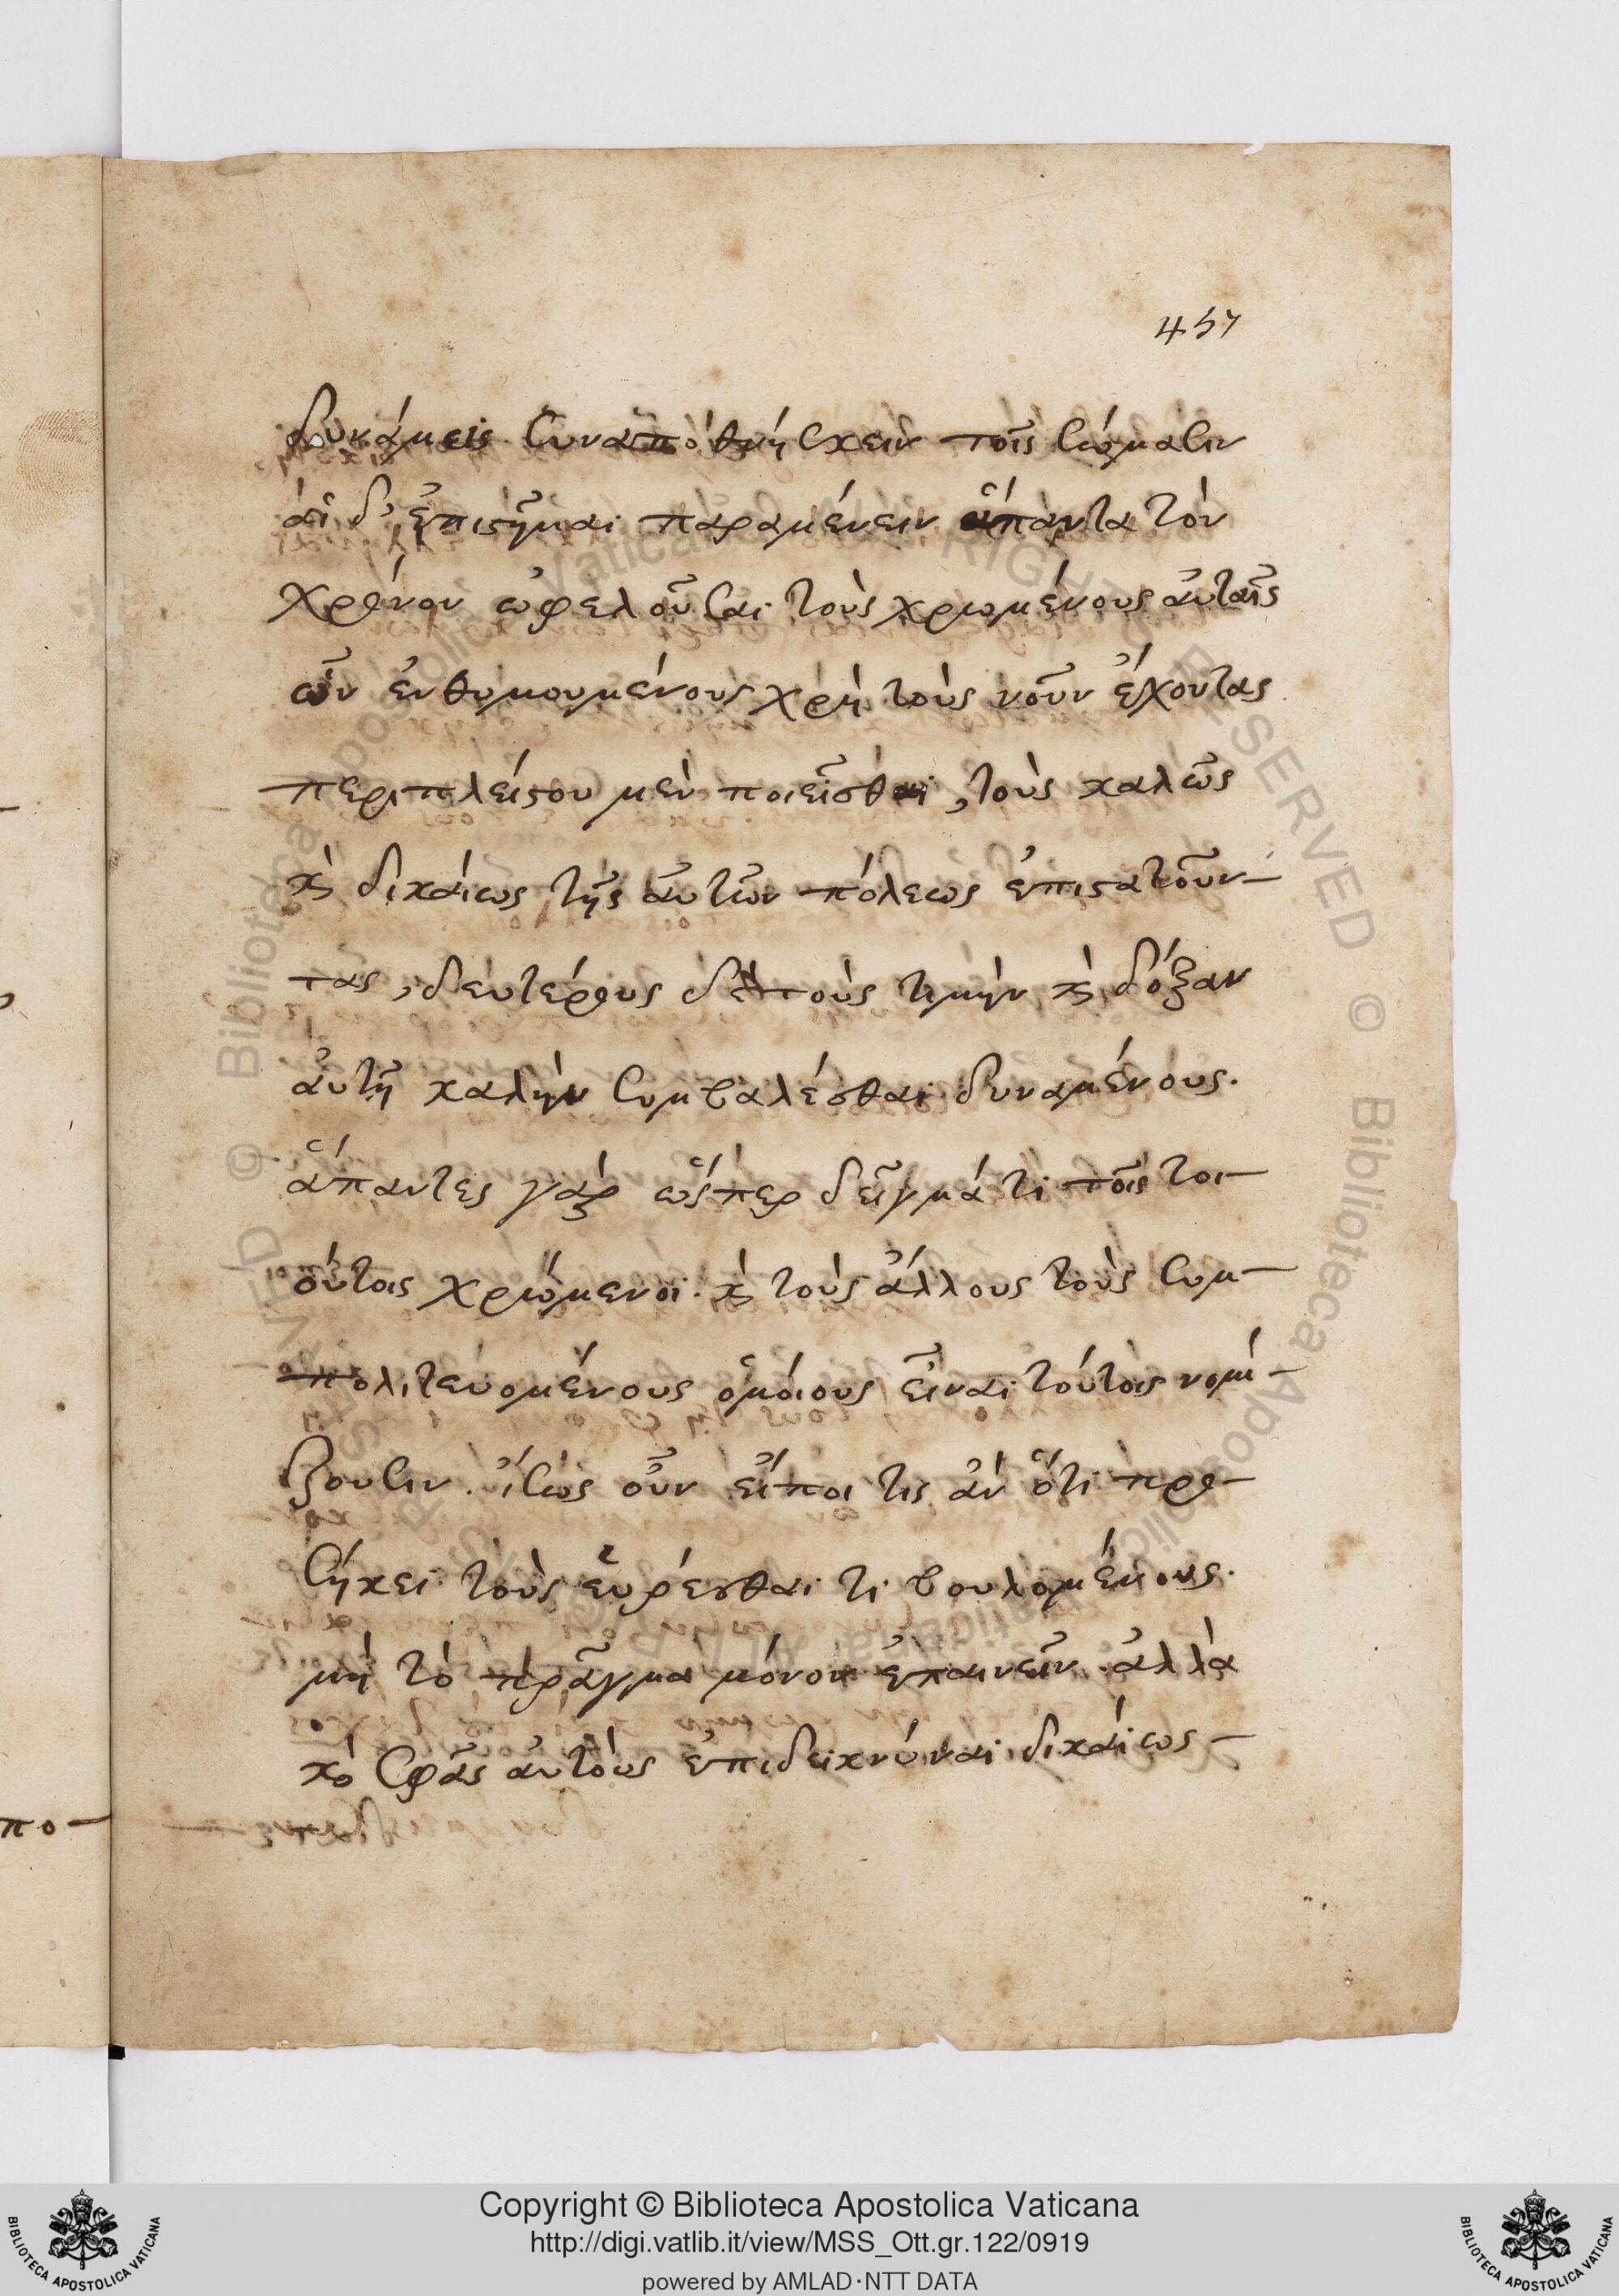 457
δυνάμεις συναποθνήσκειν τοῖς σώμασιν
αἱ δ' ἐπιστῆμαι παραμένειν ἅπαντα τὸν
χρόνον ὠφελοῦσαι τοὺς χρωμένους αὐταῖς
ὧν ἐνθυμουμένους χρὴ τοὺς νοῦν ἔχοντας
περιπλείστου μὲν ποιεῖσθαι, τοὺς καλῶς
καὶ δικαίως τῆς αὐτῶν πόλεως ἐπιστατοῦν-
τας, δευτέρους δὲ τοὺς τιμὴν καὶ δόξαν
αὐτῇ καλὴν συμβαλέσθαι δυναμένους.
ἅπαντες γὰρ ὥσπερ δείγματι τοῖς τοι-
ούτοις χρώμενοι. καὶ τοὺς ἄλλους τοὺς συμ-
πολιτευομένους ὁμοίους εἶναι τούτοις νομί-
ζουσιν. ἴσως οὖν εἴποι τις ἂν ὅτι προ-
σήκει τοὺς εὑρέσθαι τι βουλομένους.
μὴ τὸ πρᾶγμα μόνον ἐπαινεῖν. ἀλλὰ
καὶ σφᾶς αὐτοὺς ἐπιδεικνύναι δικαίως-
πο-
Copyright © Biblioteca Apostolica Vaticana
http://digi.vatlib.it/view/MSS_Ott.gr.122/0919
powered by AMLAD·NTT DATA
BIBLIOTECA APOSTOLICA VATICANA
BIBLIOTECA APOSTOLICA VATICANA
© Biblioteca Apostolica Vaticana ALL RIGHTS RESERVED © Biblioteca Apostolica Vaticana ALL RIGHTS RESERVED